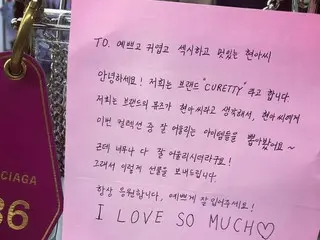 TO. 예쁘고 귀엽고 섹시하고 멋있는 현아씨
안녕하세요! 저희는 브랜드 "CURETTY" 라고 합니다
저희는 브랜드의 뮤즈가 현아씨라고 생각해서, 현아씨에게
이번 컬렉션 중 잘 어울리는 아이템들을 뽑아봤어요~
근데 너무나 다 잘 어울리시더라구요!
그래서 이렇게 선물을 보내드립니다.
항상 응원합니다, 예쁘게 잘 입어주세요!
I LOVE SO MUCH♡
CIAGA
36